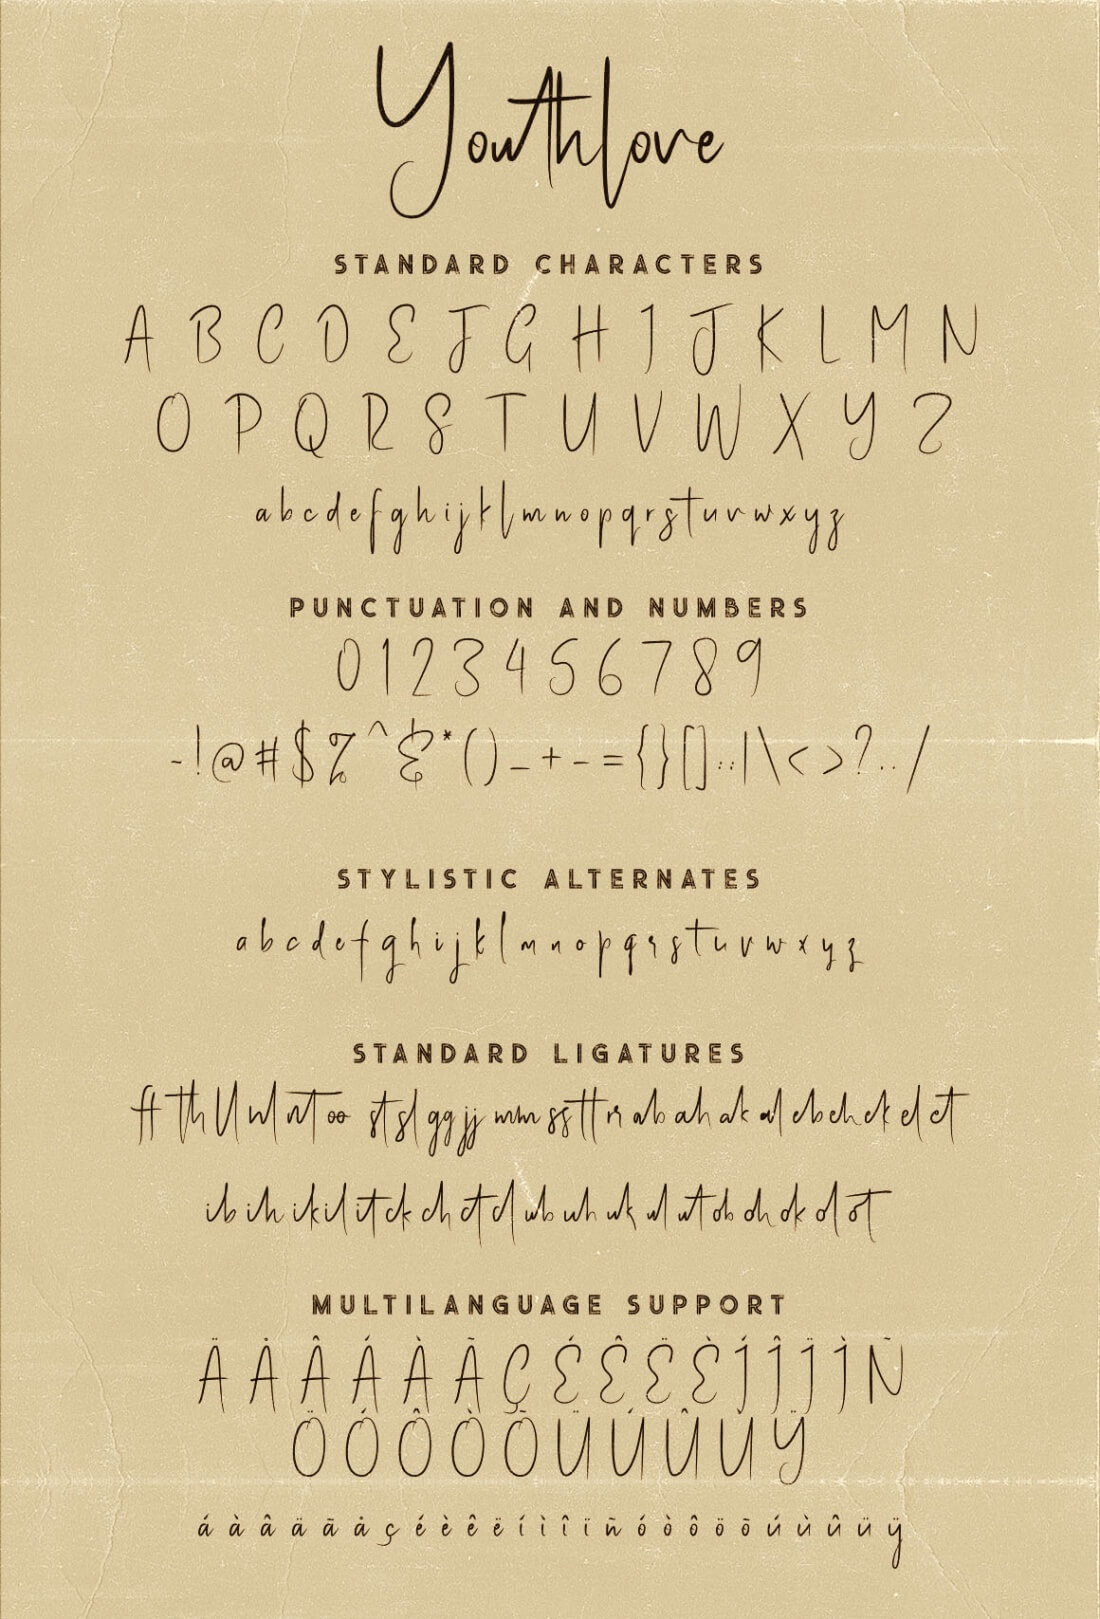 Youthlove
STANDARD CHARACTERS
A B C D E F G H I J K L M N
O P Q R S T U V W X Y Z
a b c d e f g h i j k l m n o p q r s t u v w x y z
PUNCTUATION AND NUMBERS
0 1 2 3 4 5 6 7 8 9
- ! @ # $ % ^ & * ( ) _ + - = { } [ ] : ; | \ < > ? . . /
STYLISTIC ALTERNATES
a b c d e f g h i j k l m n o p q r s t u v w x y z
STANDARD LIGATURES
ff th ll wl wt oo st sl gg jj mm ss tt rr ab ah ak al eb eh ek el et
ib ih ik il it ck ch ct cl ub uh uk ul ut ob oh ok ol ot
MULTILANGUAGE SUPPORT
Ä Å Â Á À Ã Ç É Ê Ë È Í Î Ï Ì Ñ
Ö Ó Ô Ò Õ Ü Ú Û Ù Ÿ
á à â ä ã å ç é è ê ë í ì î ï ñ ó ò ô ö õ ú ù û ü ÿ